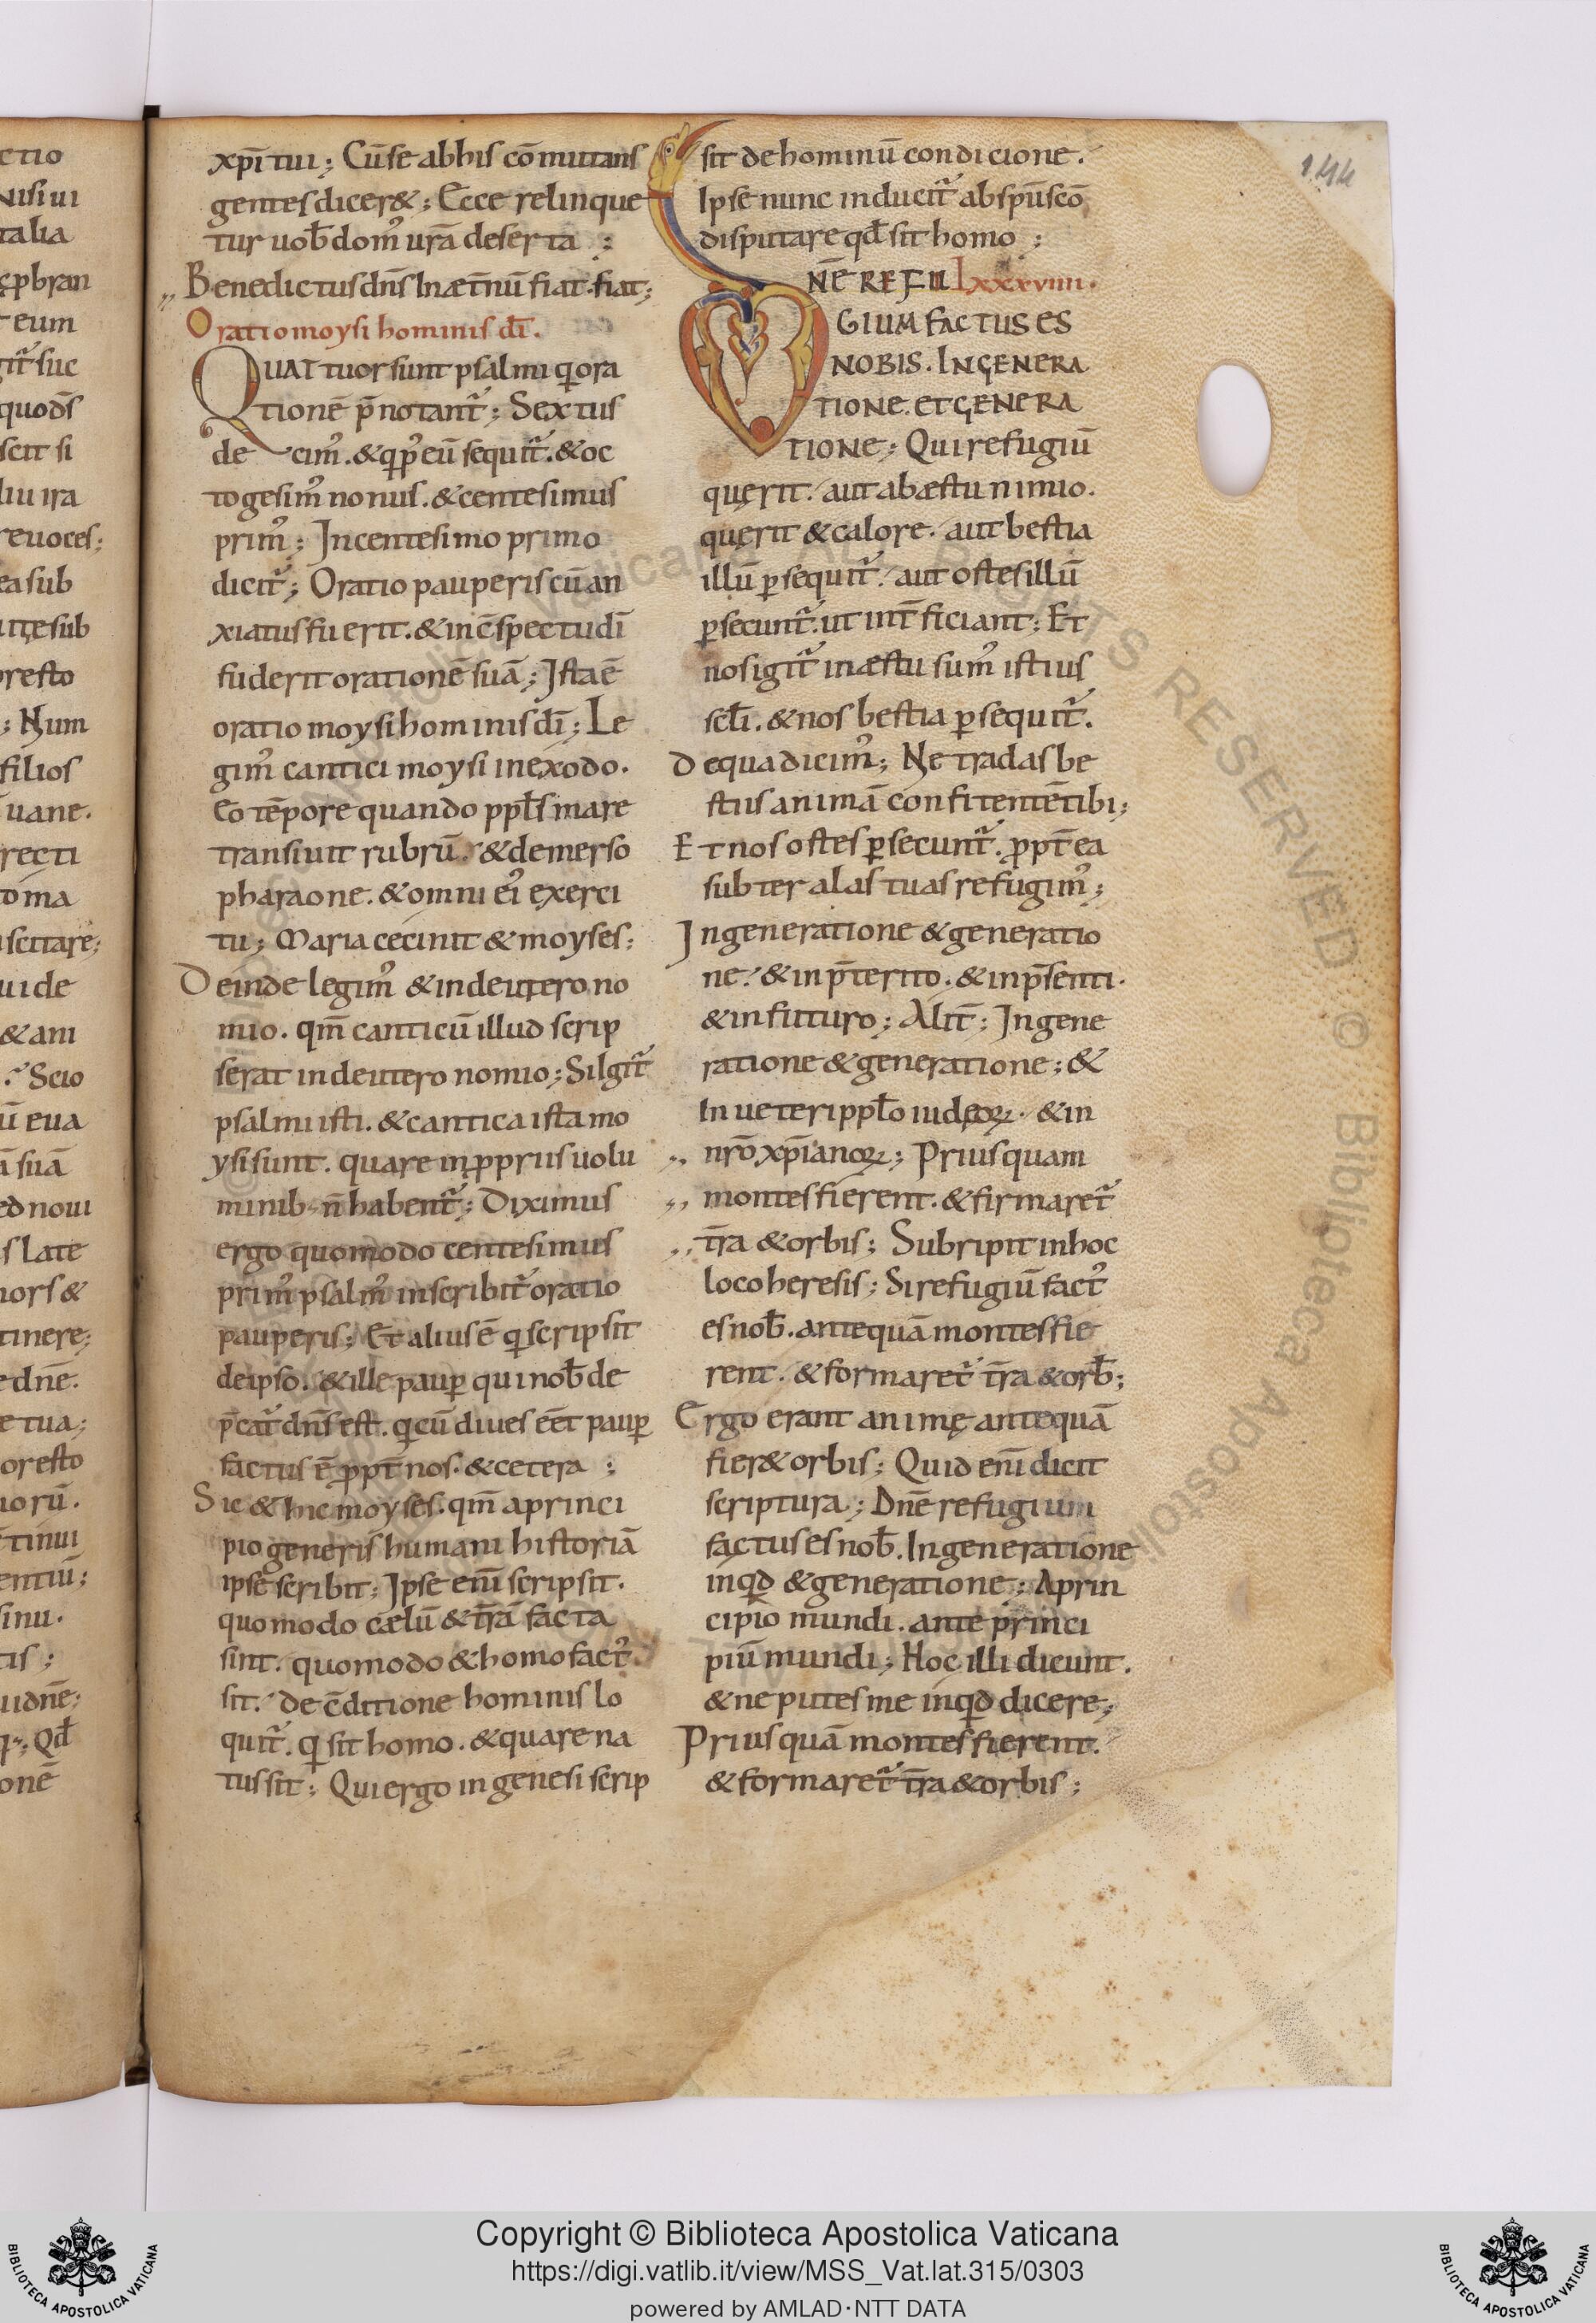 xpī tui; Cū se ab his cōmutans
gentes dicer&; Ecce relinque
tur uob̄ dom᾿ urā deserta;
Benedictus dn̄s In æt̄nū fiat. fiat;
Oratio moysi hominis dī.
QUATtuor sunt psalmi q̇ ora
tionē p̄notant᷑; Sextus
decim᾿. & q̇ p᾿ eū sequit᷑. & oc
togesim᾿ nonus. & centesimus
prim᾿; In centesimo primo
dicit᷑; Oratio pauperis cū an
xiatus fuerit. & in c̄spectu dī
fuderit orationē suā; Ista ē
oratio moysi hominis dī; Le
gim᾿ cantici moysi in exodo.
Eo tēpore quando ppl̄s mare
transiuit rubrū. & demerso
pharaone. & omni ei᾿ exerci
tu; Maria cecinit & moyses;
Deinde legim᾿ & in deuterono
mio. qm̄ canticū illud scrip
serat in deuteronomio; Si Igit᷑
psalmi isti. & cantica ista mo
ysi sunt. quare in ꝓpriis uolu
minib; n̄ habent᷑; Diximus
ergo quomodo centesimus
prim᾿ psalm᾿ inscribit᷑ oratio
pauperis; Et alius ē q̇ scripsit
de ipso. & ille paup̱ qui nob̄ de
p̄cat᷑ dn̄s est. q̇ cū diues eēt paup̱
factus ē ꝓpt̄ nos. & cetera;
Sic & hic moyses. qm̄ a princi
pio generis humani historiā
ipse scribit; Ipse enī scripsit.
quomodo cælū & t̄rā facta
sint. quomodo & homo fact᾿
sit. de c̄ditione hominis lo
quit᷑. q̇ sit homo. & quare na
tus sit; Qui ergo in genesi scrip
sit de hominū condicione.
Ipse nunc inducit᷑ ab spū scō
disputare qd̄ sit homo;
NĒ REFU Lxxxviiii.
GIUM FACTUS ES
NOBIS. IN GENERA
TIONE. ET GENERA
TIONE; Qui refugiū
querit. aut ab æstu nimio.
querit & calore. aut bestia
illū ꝑsequit᷑. aut ostes illū
ꝑsecunt᷑. ut int̄ficiant; Et
nos igit᷑ in æstu sum᾿ istius
scl̄i. & nos bestia ꝑsequit᷑.
De qua dicim᾿; Ne tradas be
stiis animā confitentē tibi;
Et nos ostes ꝑsecunt᷑. ꝓpt̄ ea
subter alas tuas refugim᾿;
In generatione & generatio
ne. & in p̄terito. & in p̄senti.
& in futuro; Alit̄; In gene
ratione & generatione; &
In ueteri ppl̄o iudeoꝝ. & in
nr̄o xp̄ianoꝝ; Prius quam
montes fierent. & firmaret᷑
t̄ra & orbis; Subripit in hoc
loco heresis; Si refugiū fact᾿
es nob̄. antequā montes fie
rent. & formaret᷑ t̄ra & orb̄;
Ergo erant animę antequā
fier& orbis; Quid enī dicit
scriptura; Dn̄e refugium
factus es nob̄. In generatione
inq̇d & generatione; A prin
cipio mundi. ante princi
piū mundi; Hoc illi dicunt.
& ne putes me inq̇d dicere;
Prius quā montes fierent.
& formaret᷑ t̄ra & orbis;
144
Copyright © Biblioteca Apostolica Vaticana
https://digi.vatlib.it/view/MSS_Vat.lat.315/0303
powered by AMLAD·NTT DATA
BIBLIOTECA APOSTOLICA VATICANA
BIBLIOTECA APOSTOLICA VATICANA